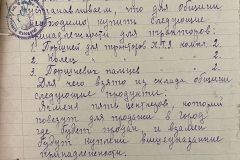 устанавливаем, что для общины
необходимо купить следующие
принадлежности для тракторов:
1. Поршней для тракторов ХТЗ компл. 2.
2. Колец " " " 2.
3. Поршневых пальцев " 2.
Для чего взять из склада общины
следующие продукты:
Ячменя пять центнеров, который
повезут для продажи в город
где будет продан и взамен
будут куплены вышеуказанные
принадлежности.